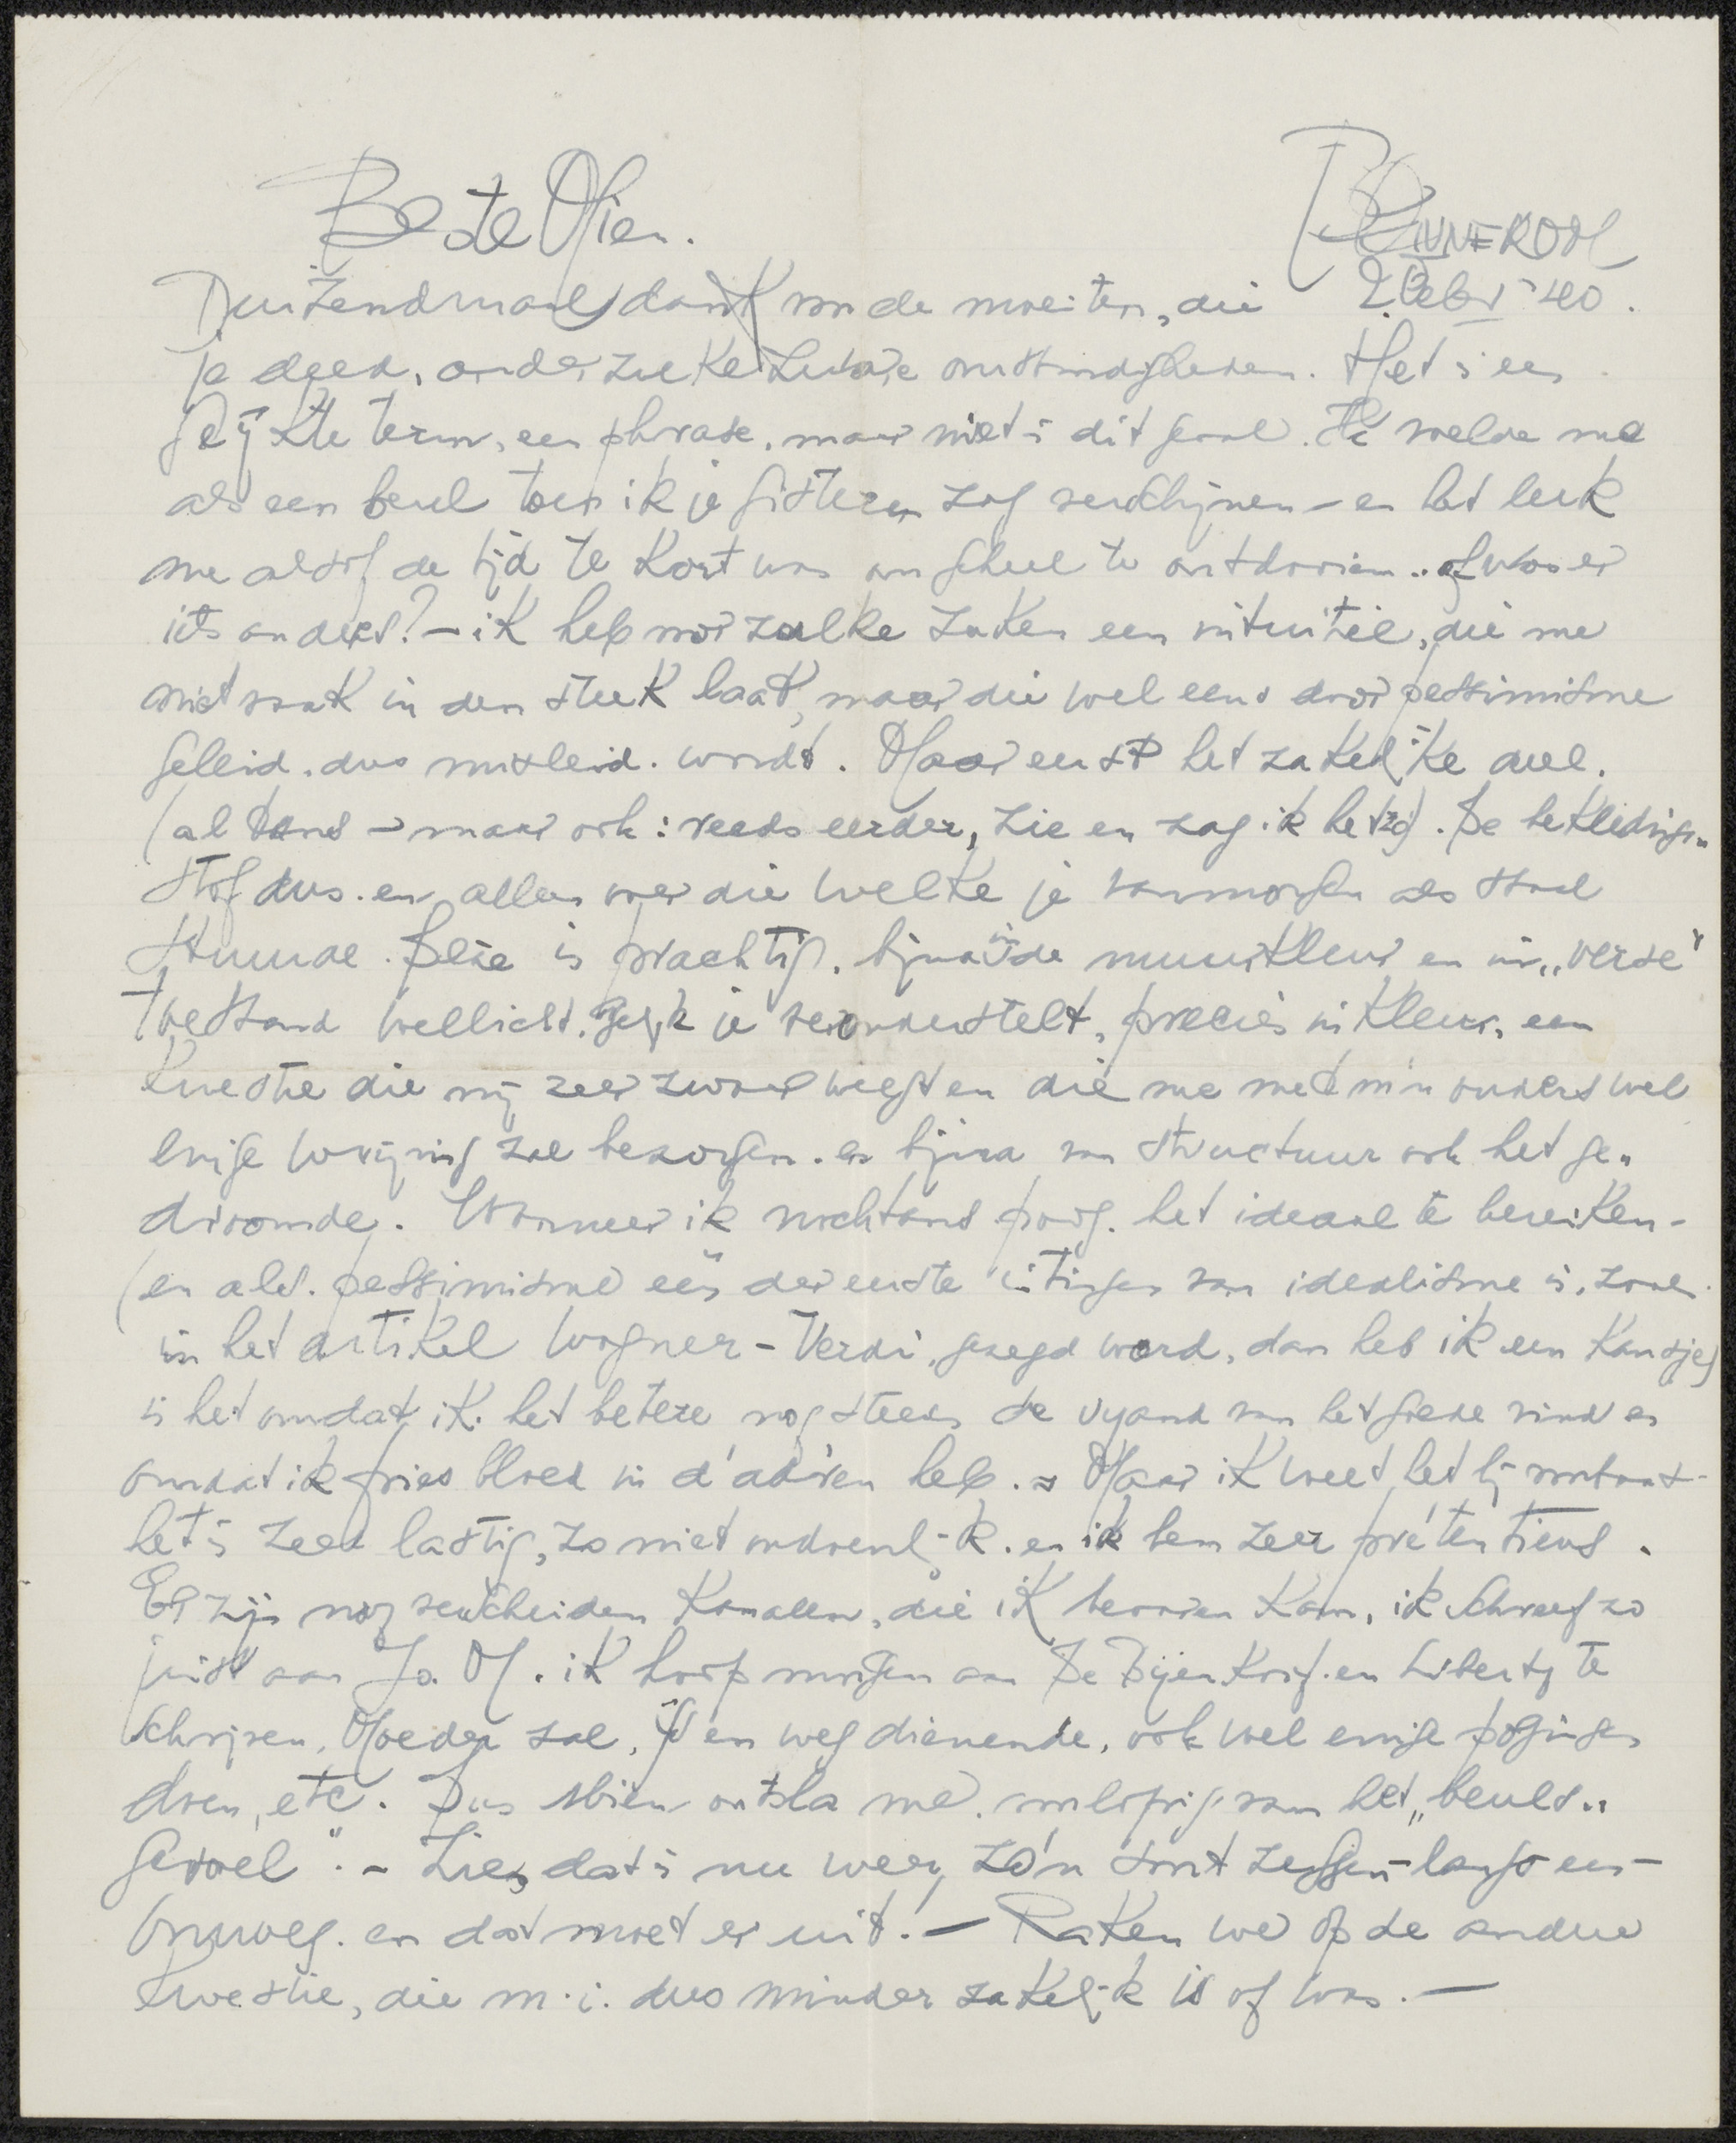 Beste Mien.
Bennebroek
2 Febr '40.
Duizendmaal dank voor de moeite, die
je deed, onder zulke zware omstandigheden. Het is een
geijkte term, een phrase, maar niet in dit geval. Ik voelde me
als een beul toen ik je gisteren zag verschijnen – en het leek
me alsof de tijd te kort was om geheel te ontdooien. of was er
iets anders? – ik heb voor zulke zaken een intuïtie, die me
niet vaak in den steek laat, maar die wel eens door pessimisme
geleid. dus misleid. wordt. Maar eerst het zakelijke deel.
(althans – maar ook: reeds eerder, zie en zag ik het zo). De bekledings-
stof dus. en alleen over die welke je vanmorgen als staal
stuurde. Deze is prachtig. bijna in de muurkleur en in „verse"
toestand wellicht. gelijk je veronderstelt, precies in kleur, een
kwestie die mij zeer zwaar weegt en die me met m'n ouders wel
enige wrijving zal bezorgen. en bijna van structuur ook het ge-
droomde. Wanneer ik nochtans poog. het ideaal te bereiken –
(en als. pessimisme één der eerste uitingen van idealisme is, zoals
in het artikel Wagner – Verdi, gezegd werd, dan heb ik een kansje)
is het omdat ik. het betere nog steeds de vijand van het goede vind en
omdat ik fries bloed in d'ad'ren heb. – Maar ik weet het bij voorbaat –
het is zeer lastig, zo niet ondoenlijk. en ik ben zeer prétentieus.
Er zijn nog verscheiden kanalen, die ik bevaren kan, ik schreef zo
juist aan Jo. M. ik hoop morgen aan De Bijenkorf. en Liberty te
schrijven, Moeder zal, en weg dienende, ook wel enige pogingen
doen, etc. Dus Mien ontsla me. voorlopig van het „beuls-
gevoel". – Zie, dat is nu weer zo'n soort zeggen – langs een –
omweg. en dat moet er uit! – Raken we op de andere
kwestie, die m.i. dus minder zakelijk is of was. —